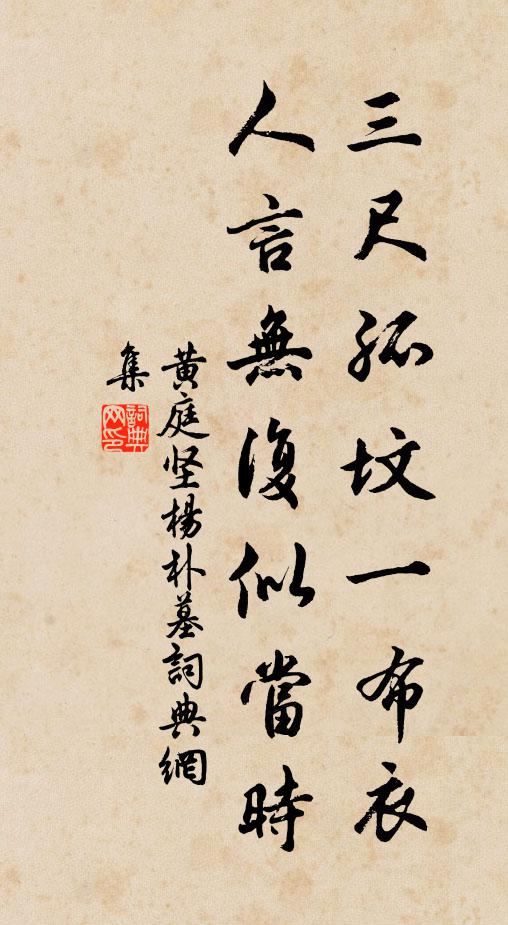 三尺孤坟一布衣
人言無復似當時
黄庭坚楊朴墓詞典網
集
詞典
网印